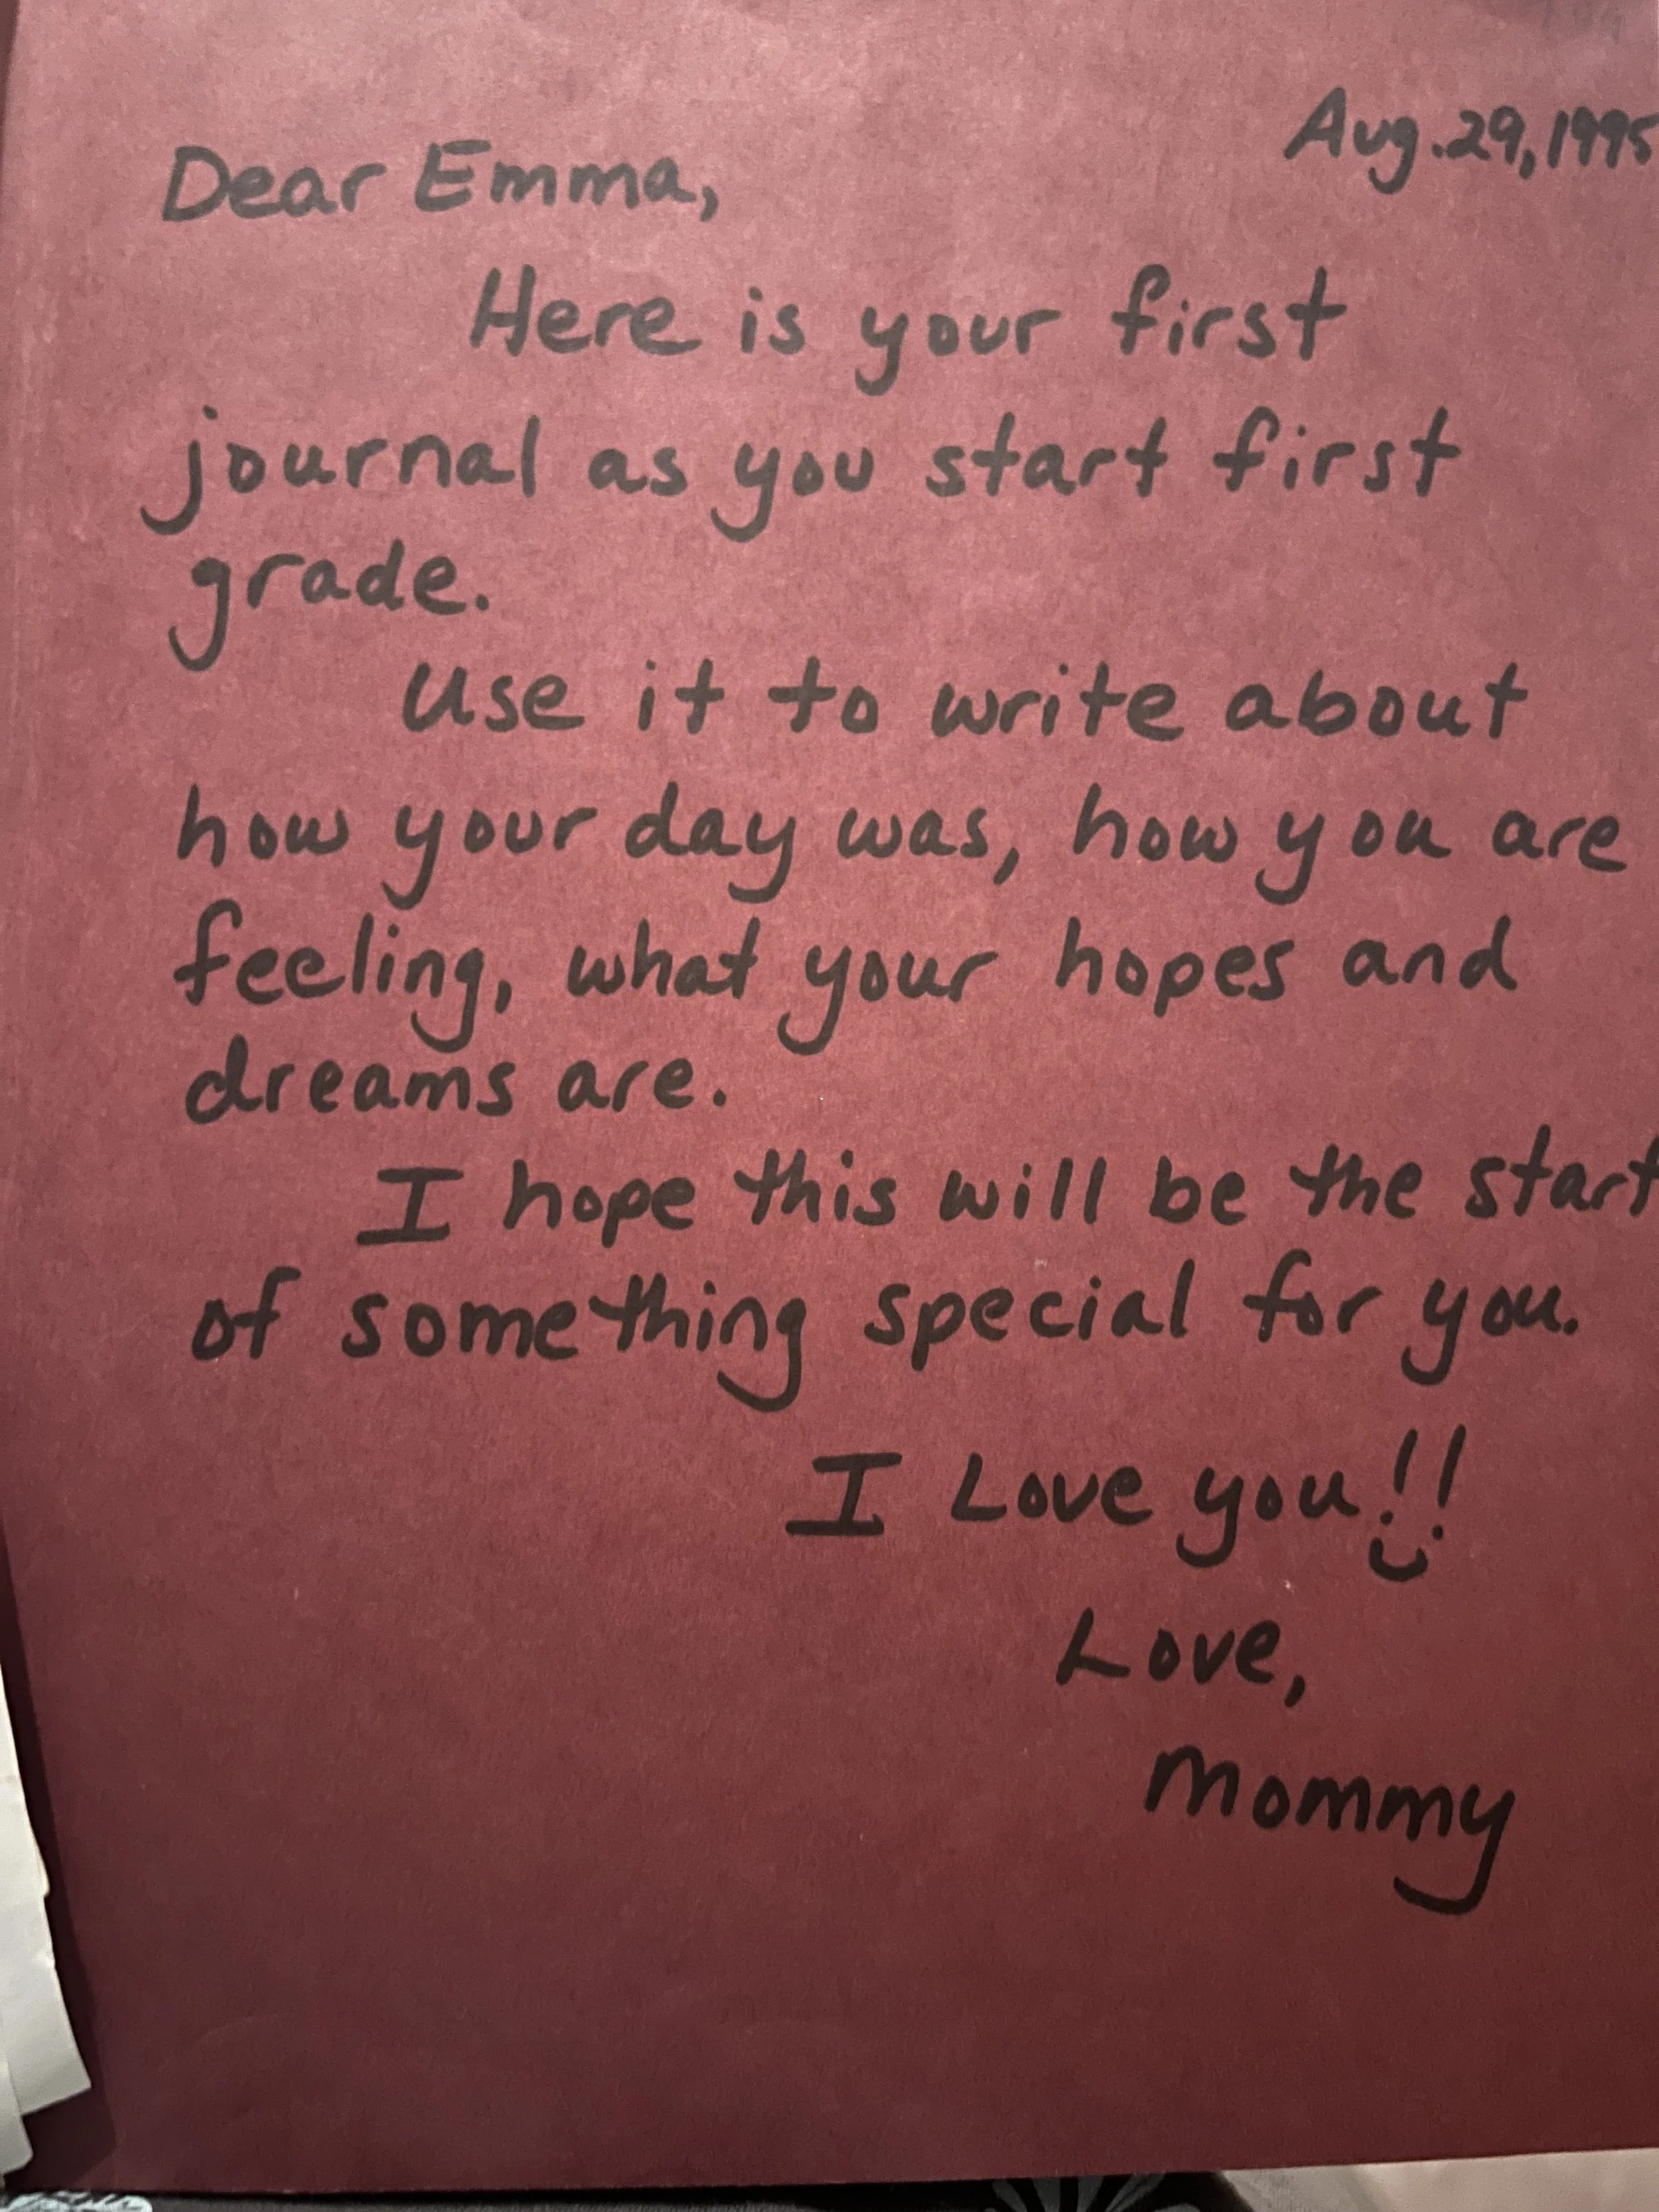 Aug. 29, 1995
Dear Emma,
Here is your first
journal as you start first
grade.
Use it to write about
how your day was, how you are
feeling, what your hopes and
dreams are.
I hope this will be the start
of something special for you.
I Love you!!
Love,
Mommy